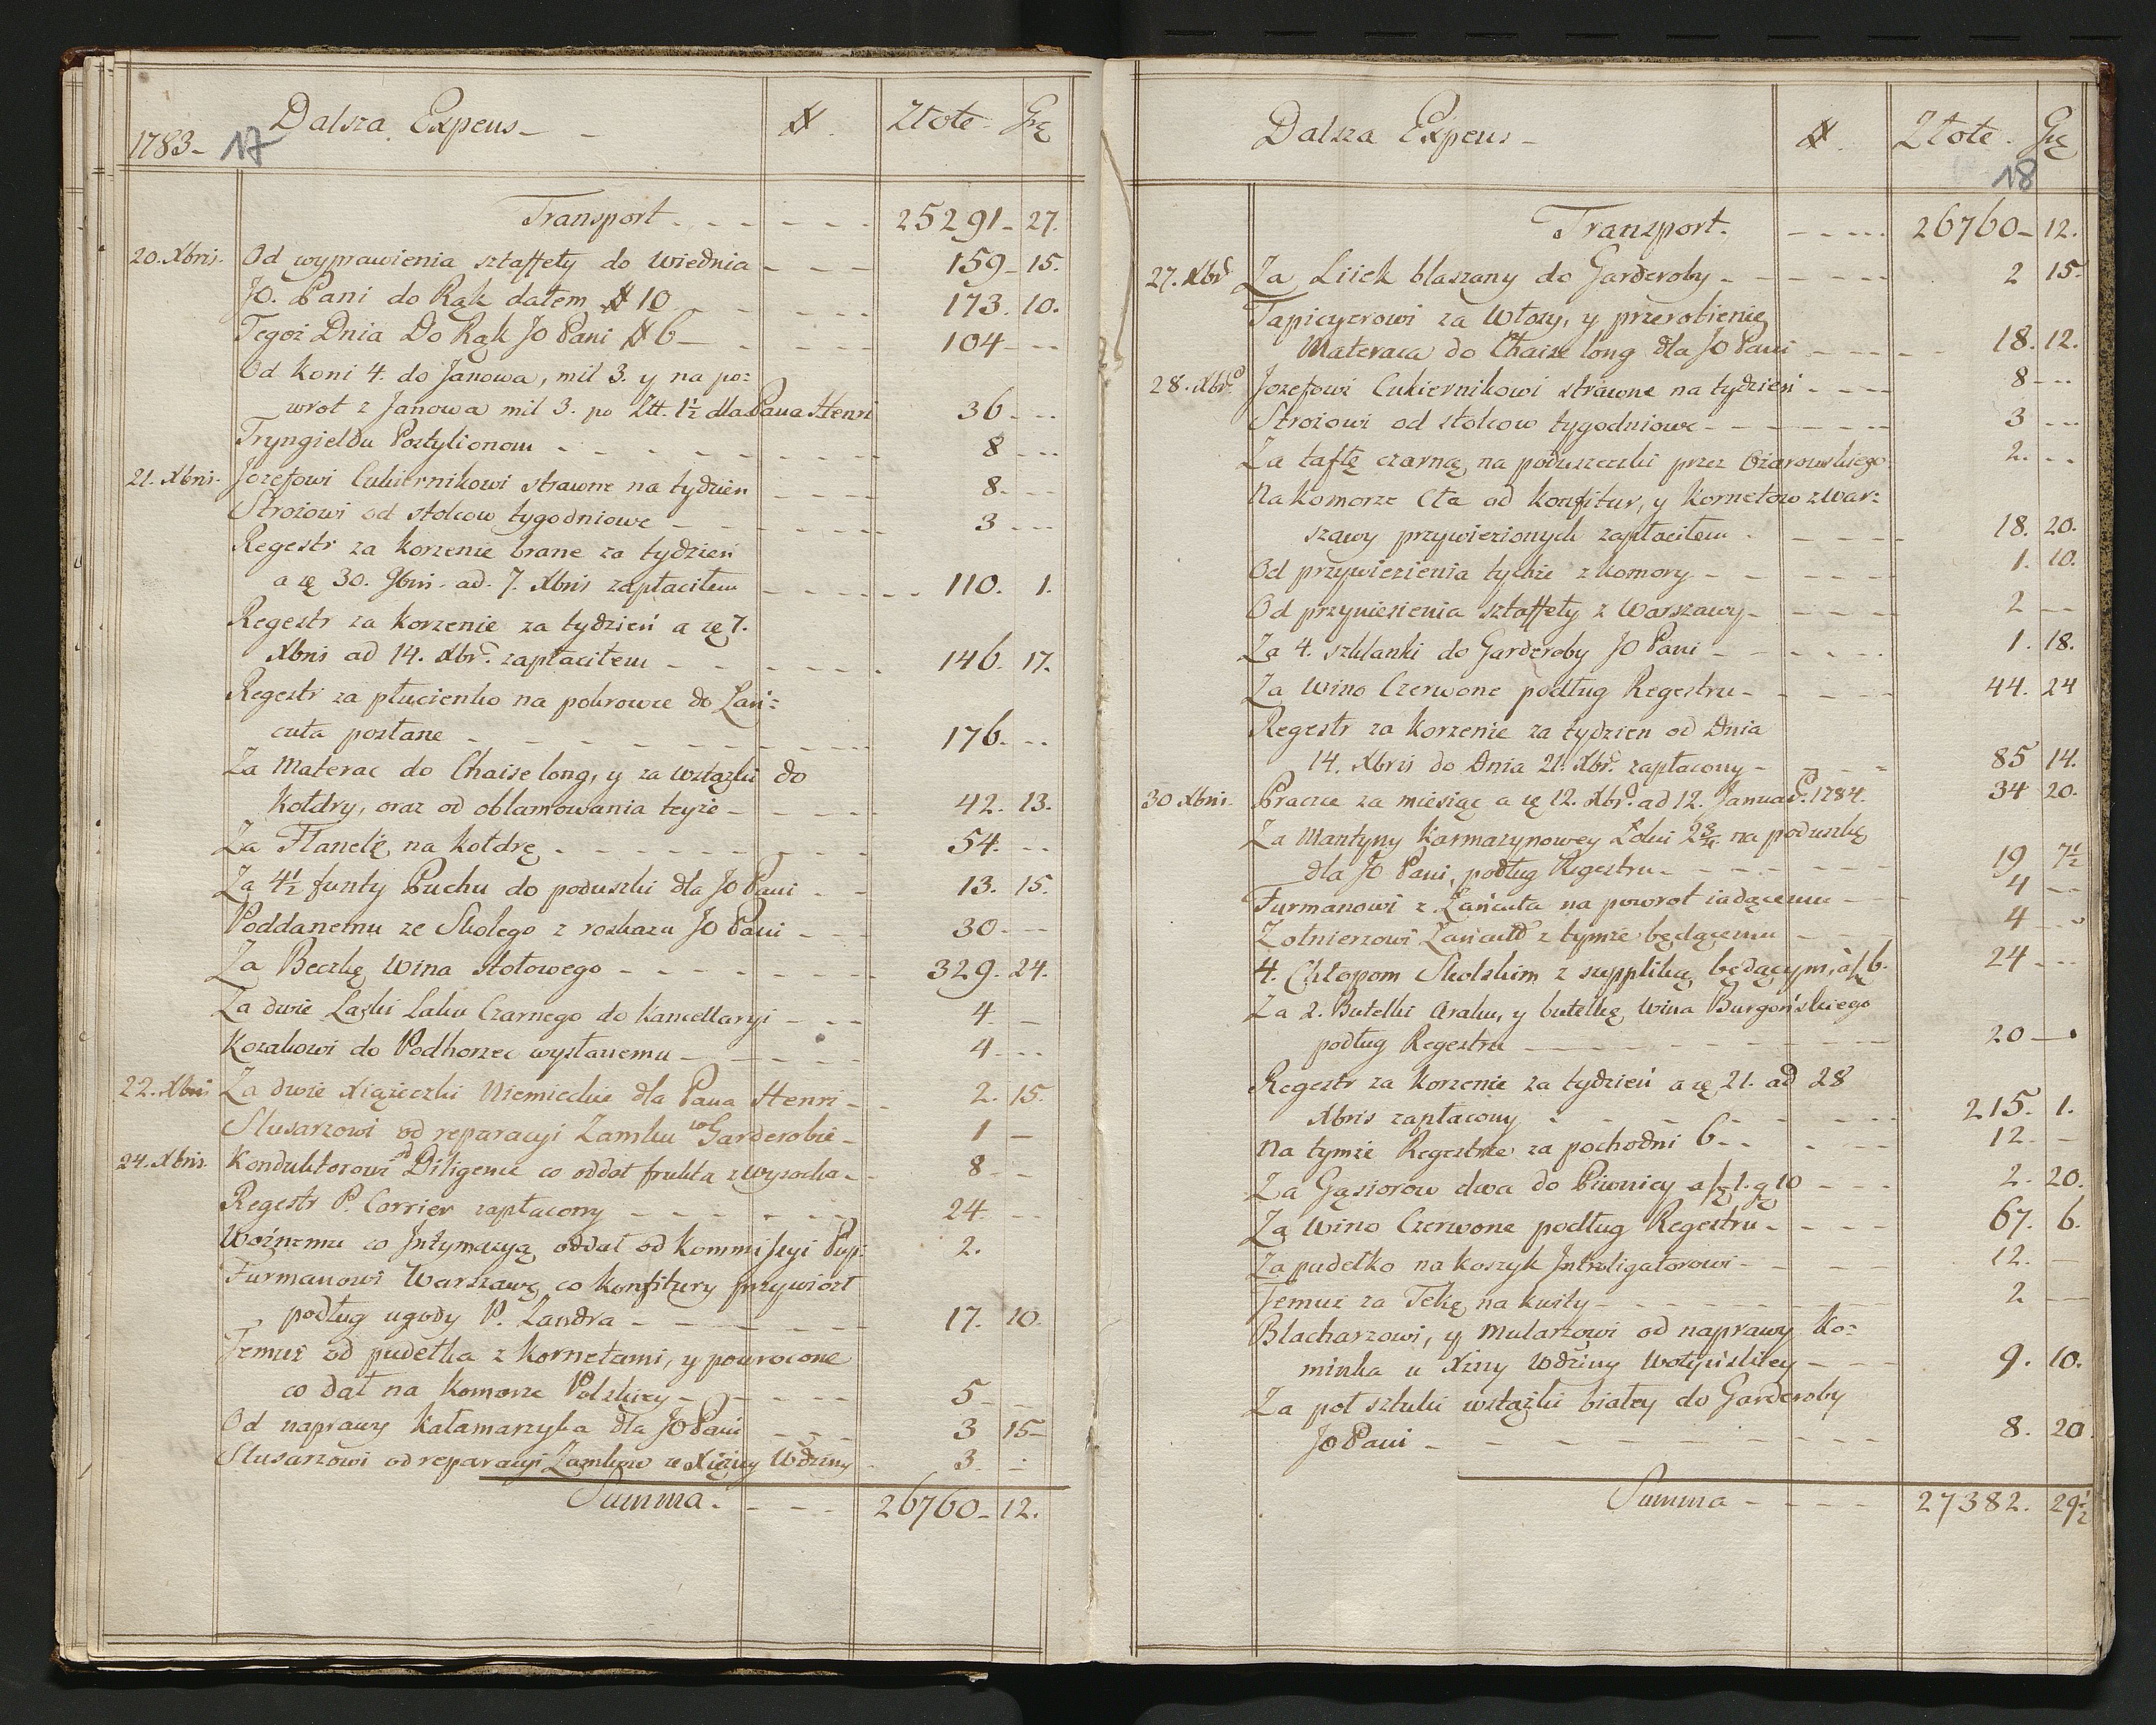 1783- 17 Dalsza Expens - - # Złote Grę
Transport - - - - - - 25291 - 27.
20. Xbris. Od wyprawienia sztaffety do Wiednia - - - 159 - 15.
JO. Pani do Rąk dałem # 10 - - - - 173. 10.
Tegoż Dnia Do Rąk JO Pani # 6 - - - - - 104 - --
Od Koni 4. do Janowa, mil 3. y na po=
wrot z Janowa mil 3. po Złł. 1½ dla Pana Henri 36 - --
Tryngieldu Postylionom - - - - - - - - 8 - --
21. Xbris. Jozefowi Cukiernikowi strawne na tydzien - - - - 8. - --
Strożowi od stolcow tygodniowe - - - - - - 3 - --
Regestr za korzenie brane za tydzień
a ię 30. 9bris. ad. 7. Xbris zapłaciłem - - - - - - 110. 1.
Regestr za korzenie za tydzień a ię 7.
Xbris ad 14. Xbr. zapłaciłem - - - - - - 146. 17.
Regestr za płucienko na pokrowce do Łań=
cuta posłane - - - - - - - - - - 176. --
Za Materac do Chaise long, y za wstążki do
Kołdry, oraz od oblamowania teyże - - - - - 42. 13.
Za Flanelę na kołdrę - - - - - - - - - 54. --
Za 4½ funty Puchu do poduszki dla JO Pani - - 13. 15.
Poddanemu ze Skolego z rozkazu JO Pani - - - 30 - --
Za Beczkę Wina stołowego - - - - - - - - 329. 24.
Za dwie Laski Laku Czarnego do Kancellaryi - - - 4 - -
Kozakowi do Podhorzec wysłanemu - - - - - - 4 - --
22. Xbris Za dwie xiążeczki Niemieckie dla Pana Henri - - 2. 15.
Slusarzowi od reparacyi Zamku w Garderobie - 1 -
24. Xbris. Konduktorowi od Diligence co oddał frukta z Wysocka - - 8 - -
Regestr P. Corrier zapłacony - - - - - - 24 - --
Woźnemu co Intymacyą oddał od Kommissyi Pupi: 2.
Furmanowi Warszawę co konfitury przywiozł
podług ugody P. Zandra - - - - - - - 17. 10.
Temuż od pudełka z Kornetami, y powrocone
co dał na Komorze Polskiey - - - - - 5 - -
Od naprawy Kałamarzyka dla JO Pani - - - 3 15 -
Slusarzowi od reparacyi Zamkow u Xiężny Wdziny - 3. -
Summa - - - - - 26760 - 12.
Dalsza Expens - # Złote. Grę
18
Transport. - - - - - 26760 - 12.
27. Xbr. Za Liiek blaszany do Garderoby - - - - - - 2 15 -
Tapicyerowi za Włosy, y przerobienie
Materaca do Chaise long dla JO Pani - - - - 18. 12.
28. Xbr. Jozefowi Cukiernikowi strawne na tydzień - - - - 8 - --
Strożowi od stolcow tygodniowe - - - - - - - 3 - --
Za taftę czarną na poduszeczki przez Ożarowskiego 2. - -
Na Komorze Cła od konfitur, y Kornetow z War=
szawy przywiezionych zapłaciłem - - - - - 18. 20.
Od przywiezienia tychże z komory - - - - - - 1. 10.
Od przyniesienia sztaffety z Warszawy - - - - - 2 --
Za 4. szklanki do Garderoby JO Pani - - - - - - 1. 18.
Za Wino Czerwone podług Regestru - - - - - 44. 24
Regestr za Korzenie za tydzien od Dnia
14. Xbris do Dnia 21. Xbr. zapłacony - - - - 85 14.
30 Xbris. Pracce za miesiąc a ię 12. Xbr. ad 12. Januar. 1784. 34 20.
Za Mantyny Karmazynowey Łokci 2¾ na poduszkę
dla JO Pani, podług Regestru - - - - - - 19 7½
Furmanowi z Łańcuta na powrot iadącemu - - - 4 --
Zołnierzowi Łańcut. z tymże będącemu - - - 4 --
4. Chłopom Skolskim z suppliką będącym, à f 6. 24 - --
Za 2. Butelki Araku, y butelkę Wina Burgońskiego
podług Regestru - - - - - - - - - - 20 - -
Regestr za Korzenie za tydzień a ię 21. ad 28
Xbris zapłacony - - - - - - - - 215. 1.
Na tymże Regestrze za pochodni 6 - - - - - 12. -
Za Gąsiorow dwa do Piwnicy a f 1. g 10 - - - 2. 20.
Za Wino Czerwone podług Regestru - - - - 67. 6.
Za pudełko na koszyk Introligatorowi - - - - - 12. -
Temuż za Tekę na kwity - - - - - - - - 2 --
Blacharzowi, y Mularzowi od naprawy Ko=
minka u Xiny Wdziny Wołyńskiey - - - 9. 10.
Za poł sztuki wstążki białey do Garderoby
JO Pani - - - - - - - - - - - 8. 20
Summa - - - - - 27382. 29½